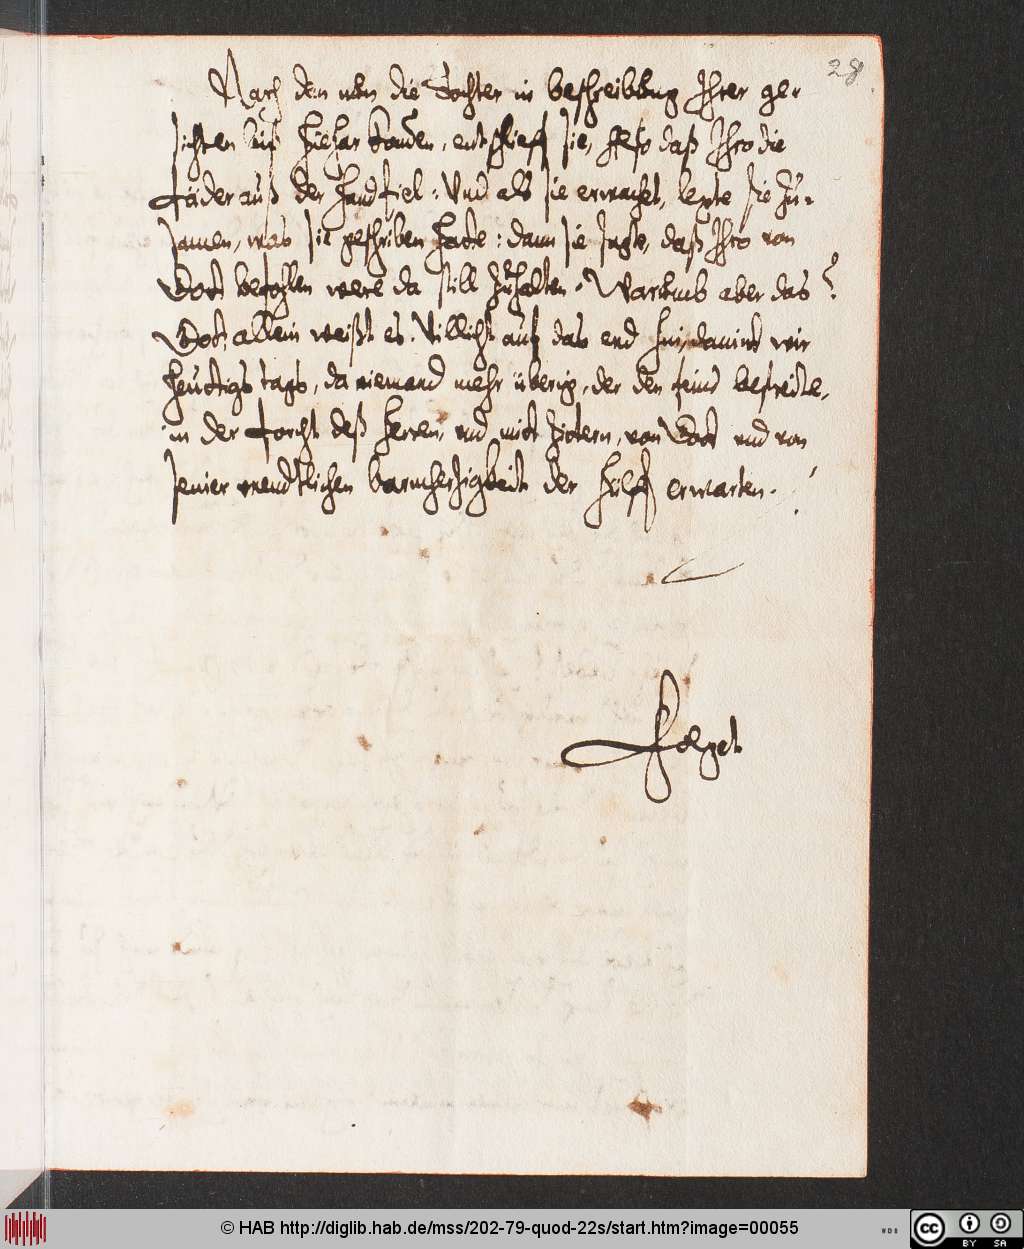 28
Nach dem nun die Tochter in beschreibung Ihrer ge-
sichten biß hiehar komen, entschlieff sie, also daß Ihro die
fäder auß der Hand fiel: Und als sie erwachet, legte sie zu-
samen, was sie geschriben hate: dann sie sagte, daß Ihro von
Gott befohlen were da still zuhalten. Warumb aber das?
Gott allein weißt es. Villicht auf das end hin, damit wir
heuttigs tags, da niemand mehr überig, der den feind bestreite,
in der forcht deß Herren, und mitt zittern, von Gott und von
seiner unendtlichen barmherzigkeit der Hülff erwarten.
folget
© HAB http://diglib.hab.de/mss/202-79-quod-22s/start.htm?image=00055
WDB
cc BY SA